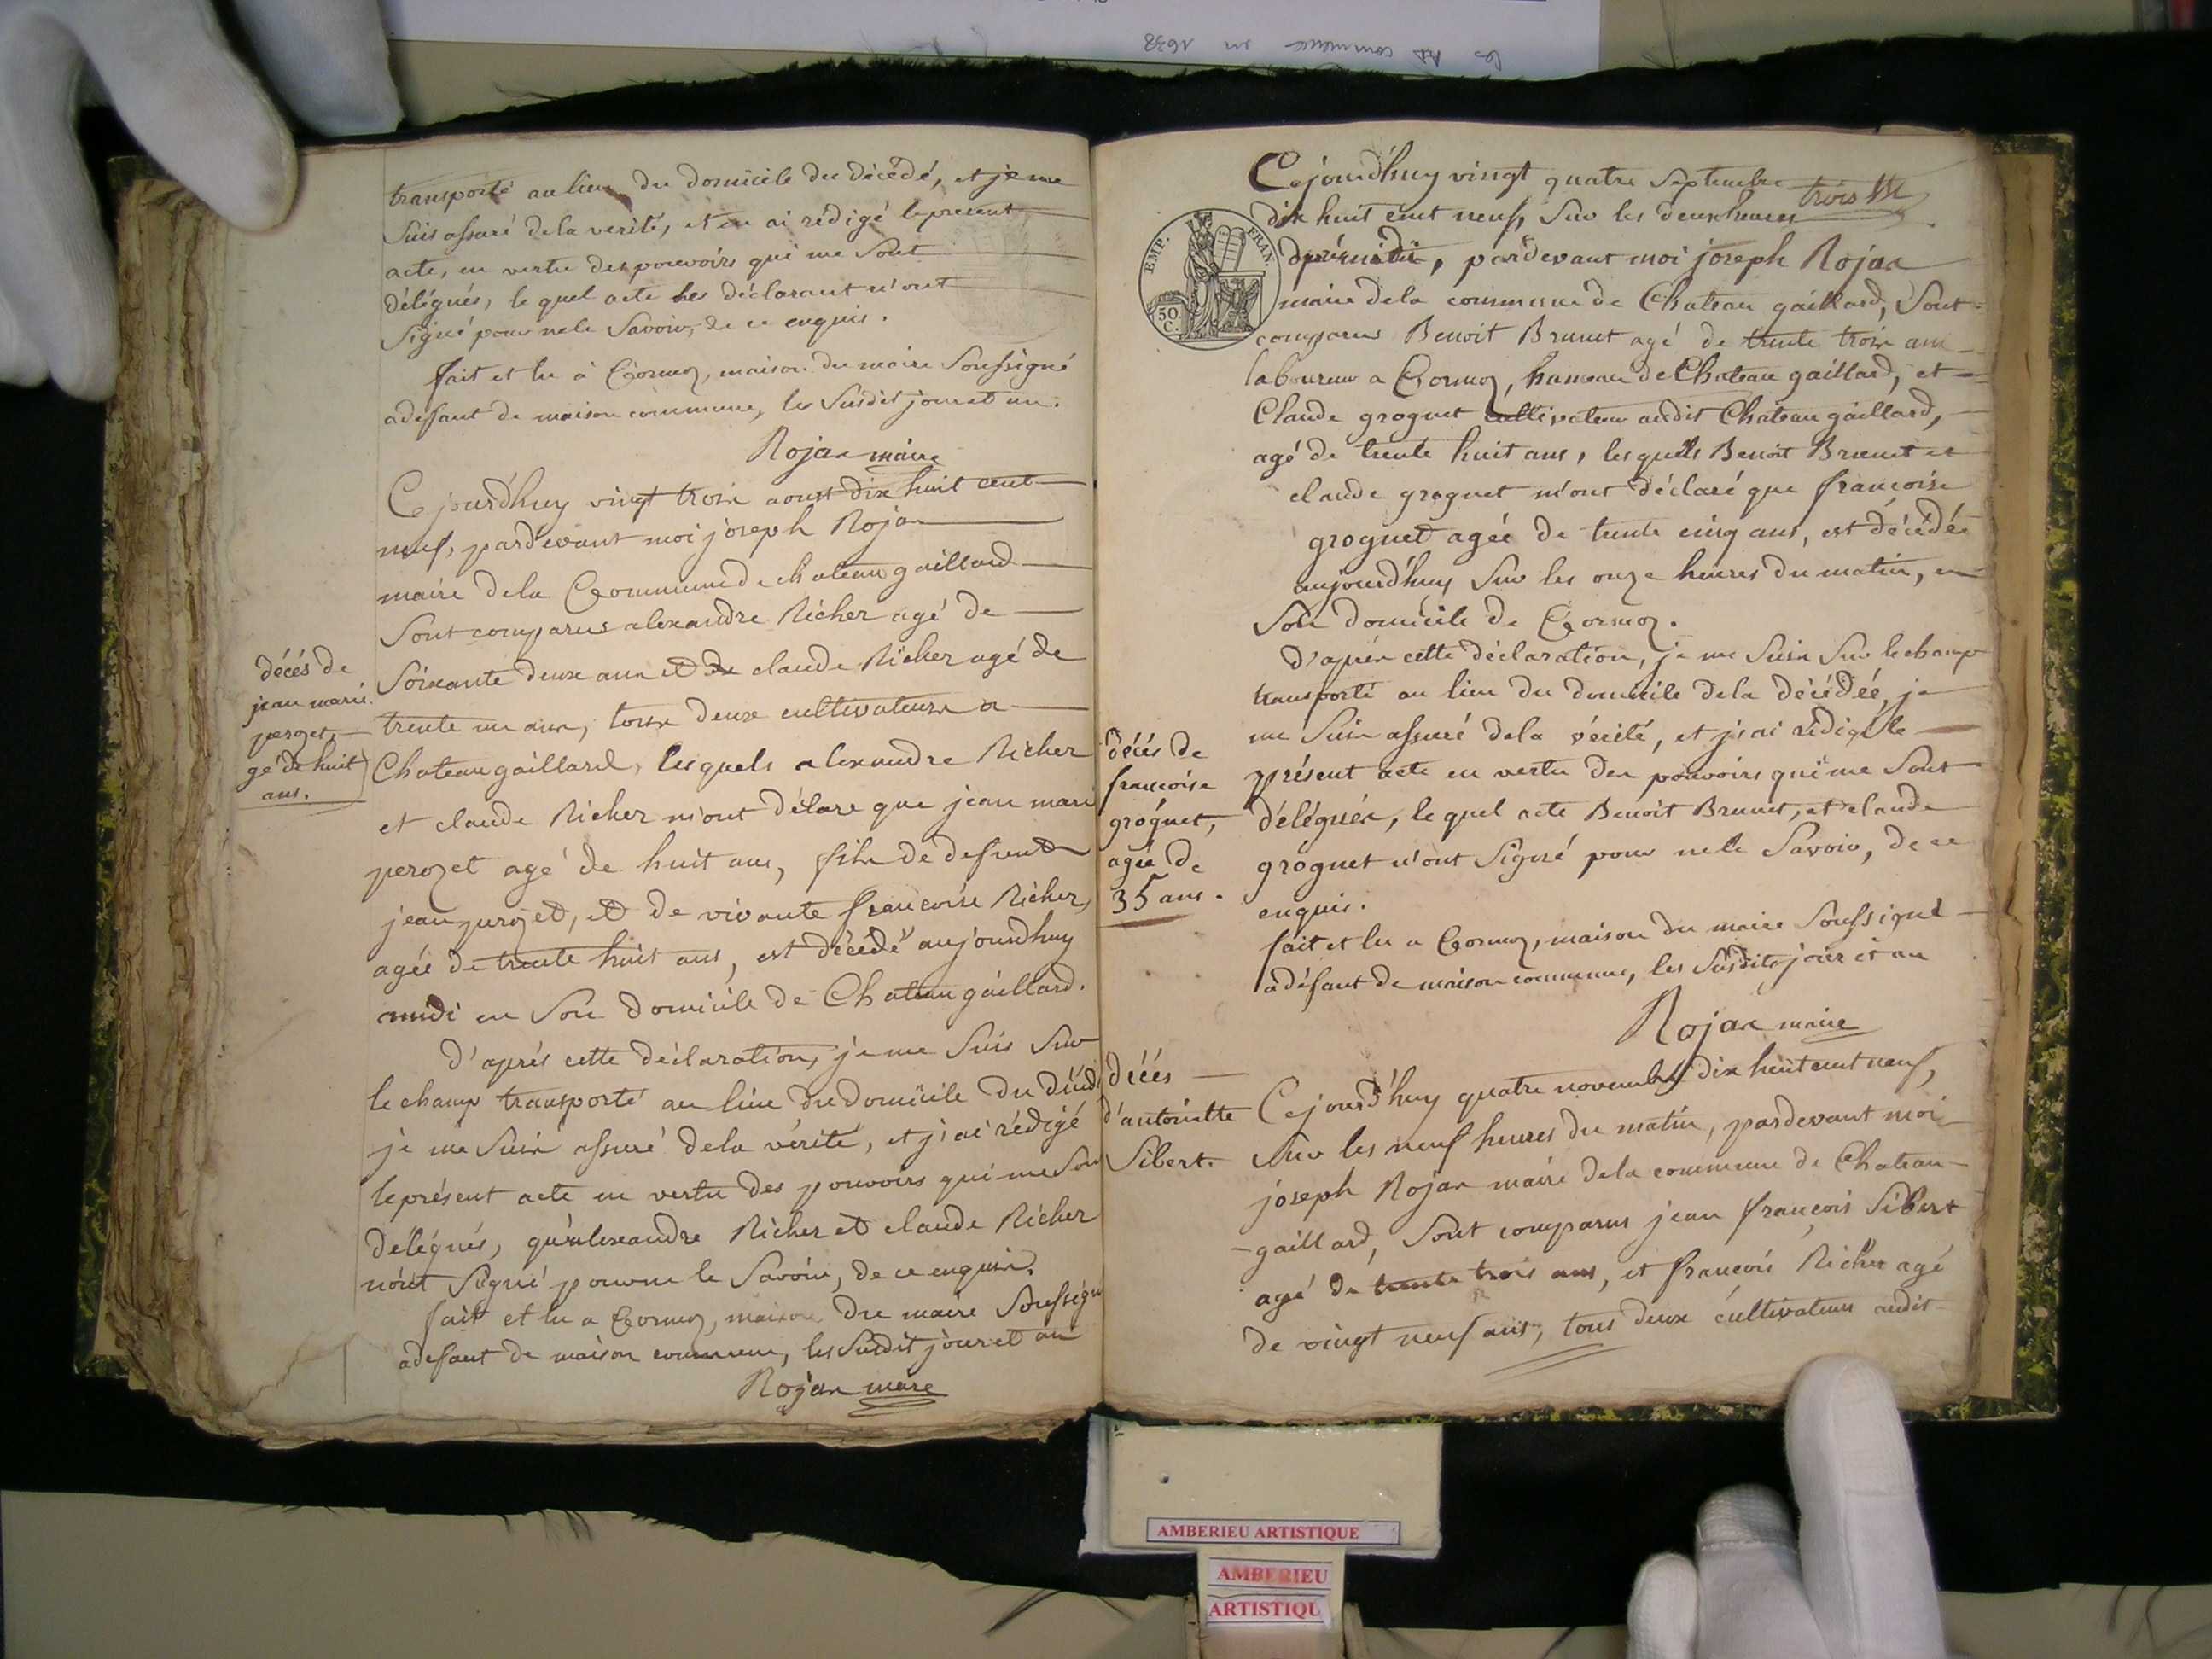 les AD commence en 1638
transporté au lieu du domicile du décédé, et je me
suis assuré dela verité, et en ai rédigé le present
acte, en vertu des pouvoirs qui me sont
délégués, le quel acte les déclarant n'ont
signé pour nele savoir, de ce enquis.
fait et lu à Cormoz, maison du maire soussigné
adefaut de maison commune, les susdit jour et an.
Rojan maire
décés de
jean marie
perozet,
gé de huit
ans.
Cejourd'huy vingt troix aoust dix huit cent
neuf, pardevant moi joseph Rojan
maire dela Commune de chateaugaillard
sont comparus alexandre Richer agé de
soixante deux anx et de claude Richer agé de
trente un anx, tous deux cultivateurx a
Chateaugaillard, lesquels alexandre Richer
et claude Richer m'ont délare que jean marie
perozet agé de huit ans, filx de defunt
jean perozet, et de vivante francoise Richer,
agée de trente huit ans, est décédé aujourdhuy
amidi en son domicile de Chateaugaillard.
d'aprés cette déclaration, je me suis sur
le champ transporté au lieu du domicile du décédé
je me suix assuré dela vérité, et j'ai rédigé
leprésent acte en vertu des pouvoirs qui me son
délégués, qu'alexandre Richer et claude Richer
n'ont signé pour ne le savoir, de ce enquix.
fait et lu a Cormoz, maison du maire soussigné
adefaut de maison commune, les susdit jour et an
Rojan maire
EMP. FRAN.
50 C.
Cejourd'huy vingt quatre septembre
dix huit cent neuf, sur les deux heures trois
aprémidi, pardevant moi joseph Rojan
maire dela commune de Chateau gaillard, sont
comparus Benoit Brunet agé de trente troix ans
laboureur a Cormoz, hameau de Chateau gaillard, et
Claude grognet cultivateur audit Chateau gaillard,
agé de trente huit ans, lesquels Benoit Brunet et
claude grognet m'ont déclaré que francoise
grognet agée de trente cinq ans, est décédée
aujourd'huy sur les onze heures du matin, en
son domicile de Cormoz.
d'aprèx cette déclaration, je me suix sur lechamp
transporté au lieu du domicile dela décédée, je
me suix assuré dela vérité, et j'ai rédigé le
présent acte en vertu dex pouvoirs qui me sont
déléguéx, le quel acte Benoit Brunet, et claude
grognet n'ont signé pour nele savoir, de ce
enquis.
décés de
francoise
grognet,
agée de
35 ans.
fait et lu a Cormoz, maison du maire soussigné
adéfaut de maison commune, les susdits jour et an
Rojan maire
décés
d'antoinette
sibert.
Cejourd'huy quatre novembre dix huit cent neuf,
sur les neuf heures du matin, pardevant moi
joseph Rojan maire dela commune de Chateau-
-gaillard, sont comparus jean francois sibert
agé de trente trois ans, et francois Richer agé
de vingt neuf ans, tous deux cultivateurs audit
AMBERIEU ARTISTIQUE
AMBERIEU
ARTISTIQU